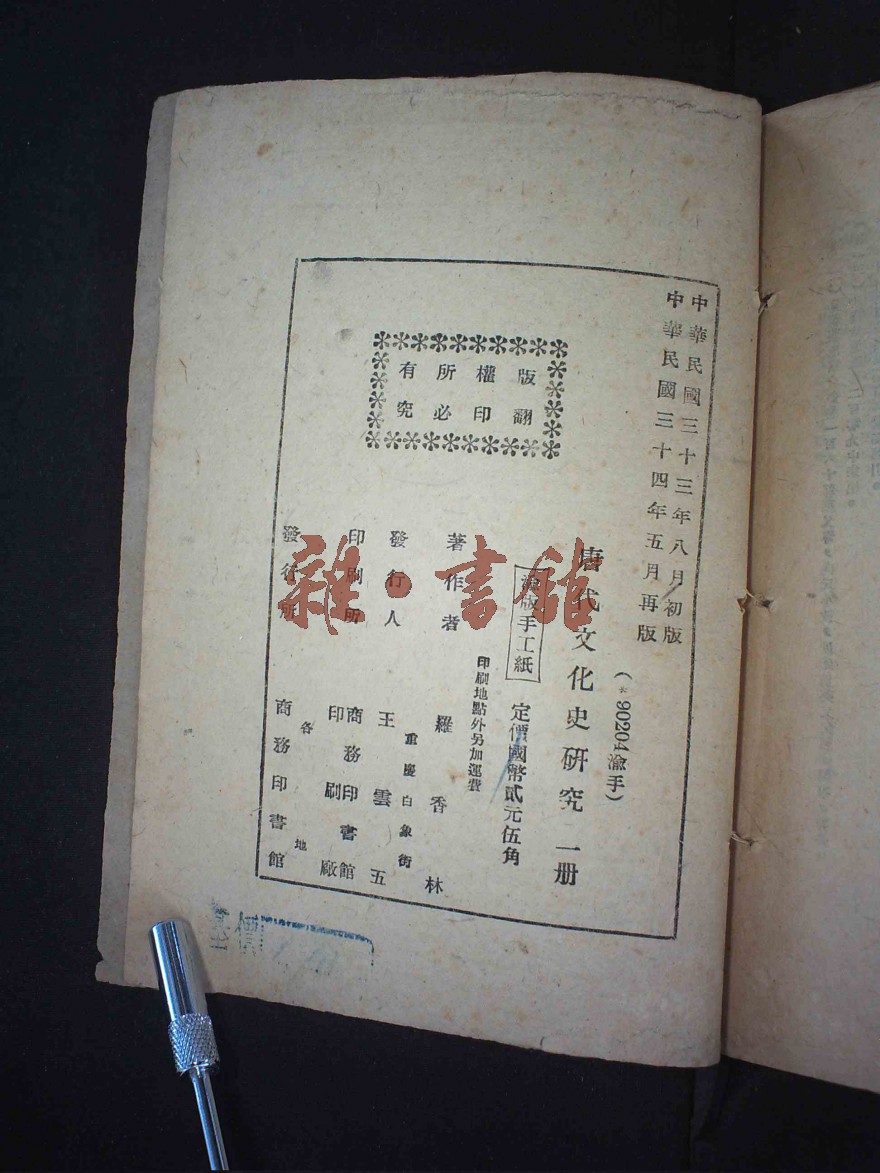 中華民國三十三年八月初版
中華民國三十四年五月再版
(*90204渝手)
唐代文化史研究 一册
渝版手工紙
定價國幣貳元伍角
印刷地點外另加運費
著作者 羅香林
重慶白象街
發行人 王雲五
印刷所 商務印書館
印刷廠
各地
發行所 商務印書館
版權所有
翻印必究
雜·書館